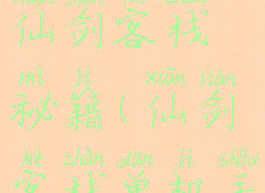 xiān jiàn kè zhàn
仙剑客栈
mì jí xiān jiàn
秘籍(仙剑
kè zhàn dān jī shǒu
客栈单机手